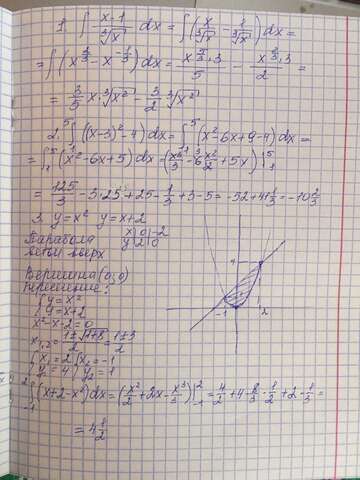 1. ∫ (x-1)/∛x dx = ∫(x/∛x - 1/∛x) =
= ∫(x^(2/3) - x^(-1/3)) dx = x^(5/3)·3/5 - x^(2/3)·3/2 =
= 3/5 x·∛x² - 3/2 ∛x²
2. ∫₁⁵ ((x-3)²-4)dx = ∫₁⁵ (x²-6x+9-4)dx =
= ∫₁⁵ (x²-6x+5)dx = (x³/3 - 6x²/2 + 5x)|₁⁵
= 125/3 - 3·25 + 25 - 1/3 + 3 - 5 = -52 + 41 1/3 = -10 2/3
3. y=x² y=x+2
Парабола x|0|-2
ветви вверх y|2|0
Вершина (0;0)
Пересечение:
{y=x²
{y=x+2
x²-x-2=0
x₁,₂ = (1±√(1+8))/2 = (1±3)/2
{x₁=2 {x₂=-1
{y₁=4 {y₂=1
4
1
-1
2
∫₋₁² (x+2-x²)dx = (x²/2 + 2x - x³/3)|₋₁² = 4/2 + 4 - 8/3 - 1/2 + 2 - 1/3 =
= 4 1/2